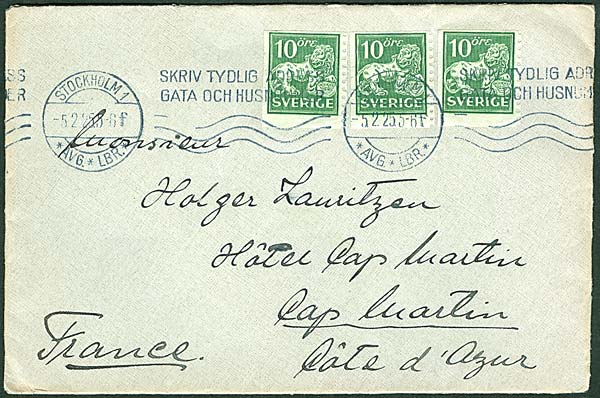 10 ÖRE SVERIGE
10 ÖRE SVERIGE
10 ÖRE SVERIGE
SKRIV TYDLIG
GATA OCH HUSNUM
SKRIV TYDLIG ADR
GATA OCH HUSNUM
STOCKHOLM 1
-5.2.25
*AVG.*LBR.*
-5.2.25
*AVG.*LBR.*
Monsieur
Holger Lauritzen
Hôtel Cap Martin
Cap Martin
Côte d'Azur
France.